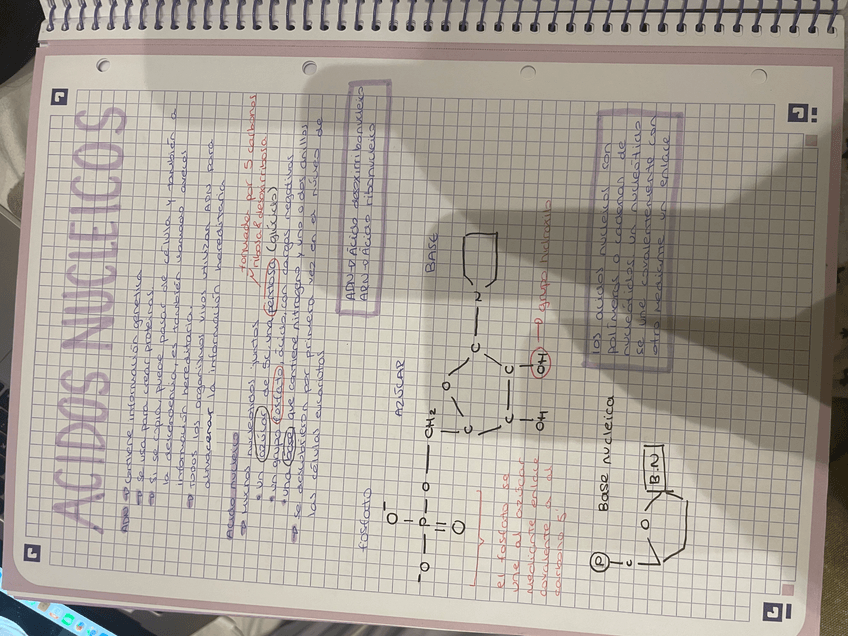 ACIDOS NUCLEICOS
ADN → contiene información genética
→ se usa para crear proteinas.
→ si se copia puede pasar de célula y también a
la descendencia, es también llamado
información hereditaria.
→ todos los organismos vivos utilizan ADN para
almacenar la información hereditaria
Acido nucleico
formado por 5 carbonos
→ muchos nucleotidos juntos
ribosa & desoxirribosa
• un azúcar de se una pentosa (glúcido)
• un grupo fosfato, ácido, con cargas negativas
• una base que contiene nitrogeno y uno o dos anillos
→ se descubrieron por primera vez en el núcleo de
las células eucariotas
ADN → Ácido desoxirribonucleico
ARN → Ácido ribonucleico
FOSFATO
AZÚCAR
BASE
O⁻
⁻O — P — O — CH₂
O
O
C
C
N
C
C
OH
OH → grupo hidroxilo
el fosfato se
une al azúcar
mediante enlace
covalente a el
carbono 5'
Base nucleica
P
C
O
B.N
los ácidos nucleicos son
polímeros o cadenas de
nucleótidos, un nucleótido
se une covalentemente con
otro mediante un enlace